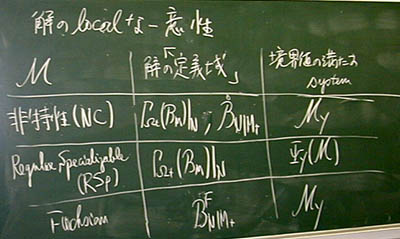 解の local な一意性
M 解の「定義域」 境界値の満たす system
非特性 (NC) M_Y
Regular Specializable (RSp) Ψ_Y(M)
Fuchsian M_Y